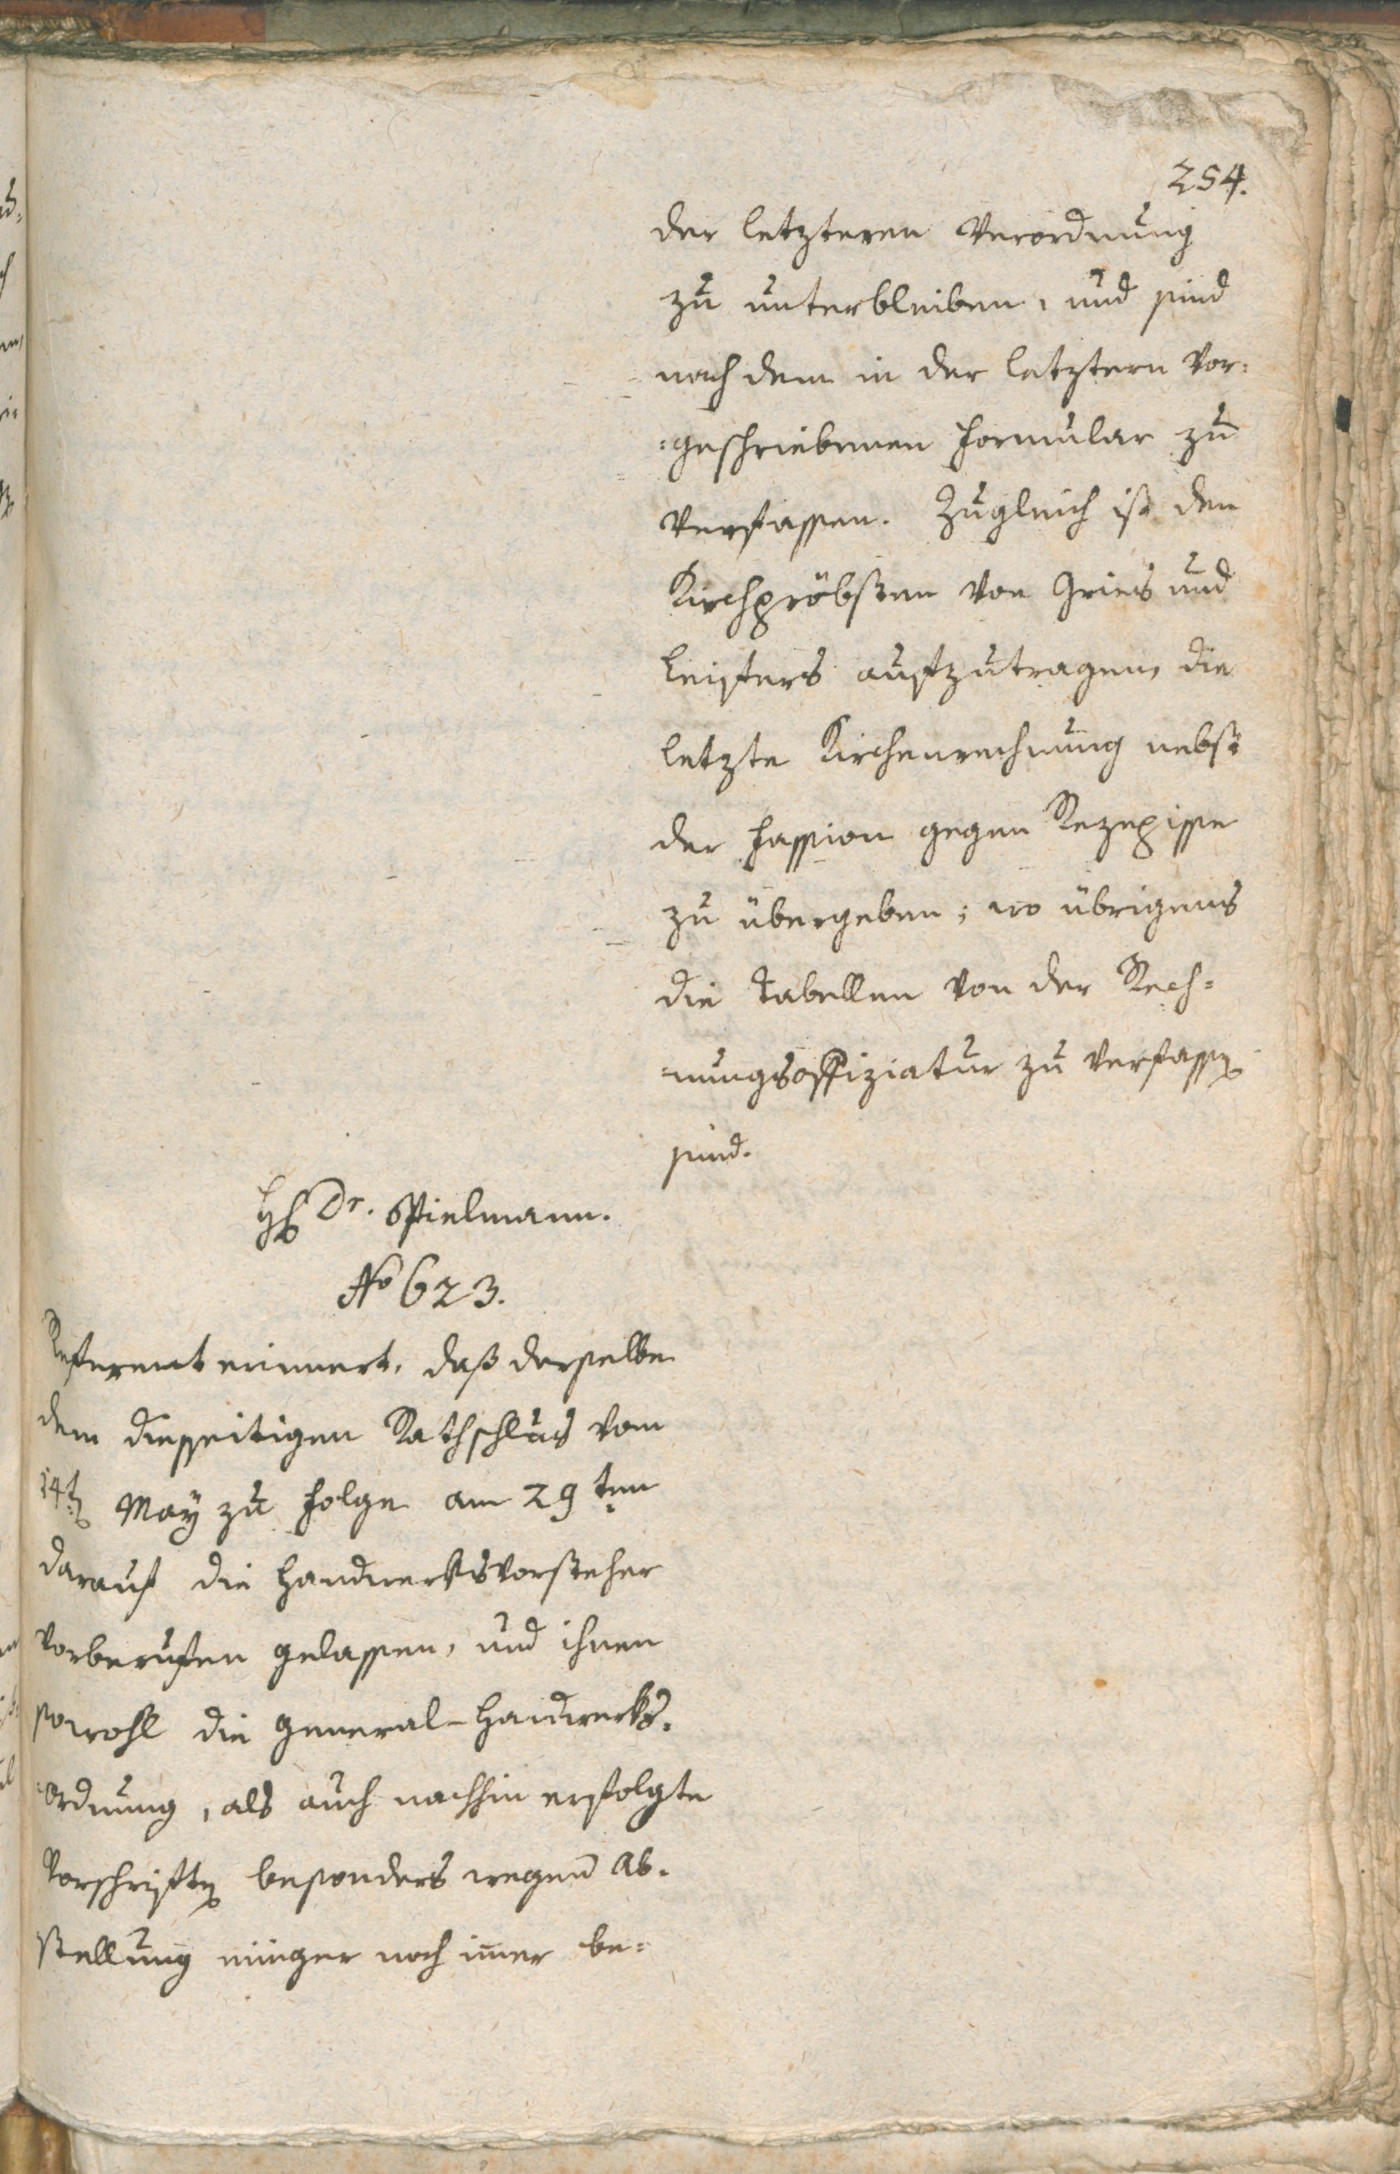 254.
der letzteren Verordnung
zu unterbleiben, und sind
nach dem in der letztern vor-
=geschriebenen Formular zu
verfassen. Zugleich ist den
Kirchpröbsten von Gries und
Leifers aufzutragen, die
letzte Kirchenrechnung nebst
der Fassion gegen Rezepisse
zu übergeben; wo übrigens
die Tabellen von der Rech=
=nungsoffiziatur zu verfassen
sind.
H Dr. Spielmann.
No 623.
Referent erinnert, daß derselbe
dem diesseitigen Rathschlus vom
14t May zu Folge am 29ten
darauf die Handwerksvorsteher
vorberufen gelassen, und ihnen
sowohl die General-Handwerks-
Ordnung, als auch nachhin erfolgte
Vorschriften besonders wegen Ab-
stellung einiger noch imer be=